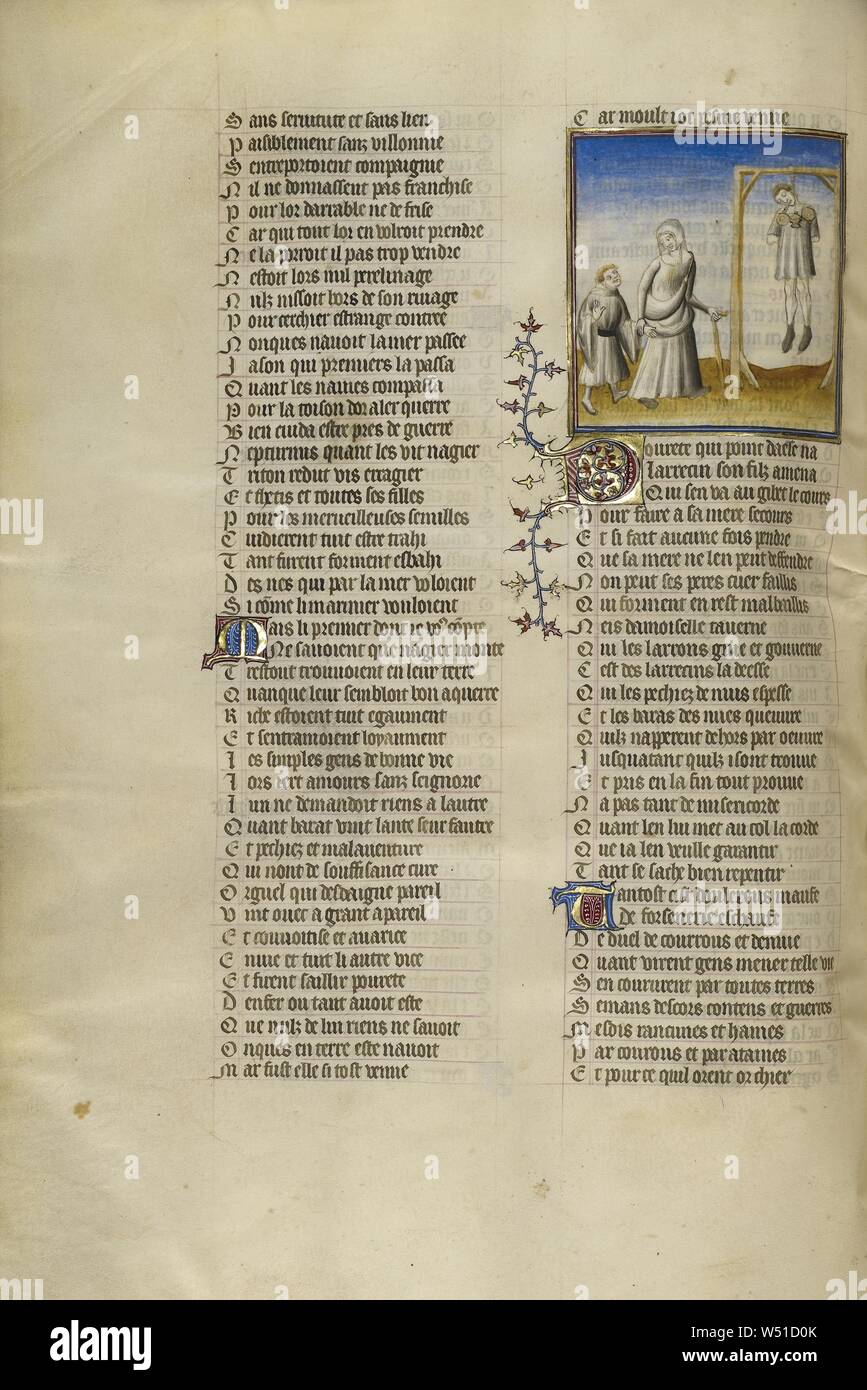 Sans seruitute et sans lien
Paisiblement sanz villonnie
Sentreportoient compaignie
Nil ne donnassent pas franchise
Pour lor darrable ne de frise
Car qui tout lor en volroit prendre
Ne la porroit il pas trop vendre
Nestoit lors nul pelerinage
Nulz nissoit hors de son riuage
Pour cerchier estrange contree
Nonques nauoit la mer passee
Jason qui premiers la passa
Quant les nauies compassa
Pour la toison dor aler querre
Bien cuida estre pres de guerre
Nepturnus quant les vit nagier
Triton redut vis erragier
Et et toutes ses filles
Pour les merueilleuses semilles
Cuidierent tuit estre trahi
Tant furent forment esbahi
Des nes qui par la mer voloient
Si cõme li marinier vouloient
Mais li premier dont ie
Ne sauoient que nagier monte
Trestout trouuoient en leur terre
Quanque leur sembloit bon aquerre
Riche estoient tuit egaument
Et sentramoient loyaument
Les simples gens de bonne vie
Lors iert amours sanz seignorie
Lun ne demandoit riens a lautre
Quant barat vint lance seur fautre
Et pechiez et malauenture
Qui nont de souffisance cure
Orguel qui desdaigne pareil
Vint ouec a grant apareil
Et couuoitise et auarice
Enuie et tuit li autre vice
Et firent saillir pourete
Denfer ou tant auoit este
Que nulz de lui riens ne sauoit
Onques en terre este nauoit
Mar fust elle si tost venue
Car moult venue
Pourete qui point de sens na
Larrecin son filz amena
Qui sen va au gibet le cours
Pour faire a sa mere secours
Et si fait aucune fois pendre
Que sa mere ne len peut deffendre
Non peut ses peres cuer faillis
Qui forment en rest malbaillis
Neis damoiselle tauerne
Qui les larrons guie et gouuerne
Cest des larrecins la deesse
Qui les pechiez de nuis espesse
Et les baras des nues queuure
Quilz napperent dehors par oeuure
Jusquatant quilz i sont trouue
Et pris en la fin tout prouue
Na pas tant de misericorde
Quant len hu met au col la corde
Que ia len veulle garantir
Tant se sache bien repentir
Tantost maufe
De forsenerie eschaufe
De duel de courrous et denuie
Quant virent gens mener telle vie
Sen coururent par toutes terres
Semans descors contens et guerres
Mesdis rancunes et haines
Par courous et par ataines
Et pour ce quil orent or chier
a
alamy
Image ID: W51D0K
www.alamy.com